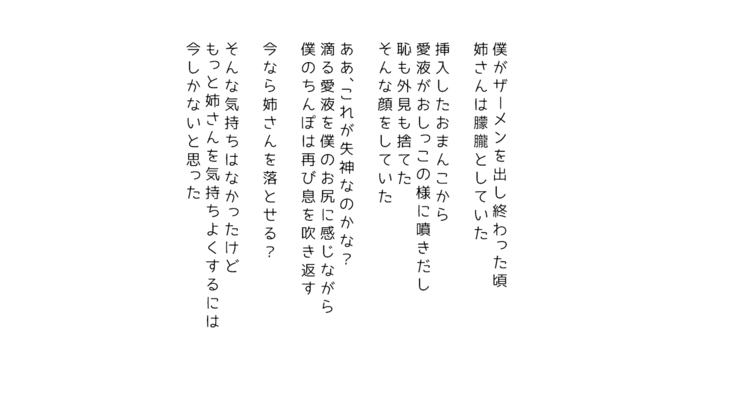 僕がザーメンを出し終わった頃
姉さんは朦朧としていた
挿入したおまんこから
愛液がおしっこの様に噴きだし
恥も外見も捨てた
そんな顔をしていた
ああ、これが失神なのかな？
滴る愛液を僕のお尻に感じながら
僕のちんぽは再び息を吹き返す
今なら姉さんを落とせる？
そんな気持ちはなかったけど
もっと姉さんを気持ちよくするには
今しかないと思った